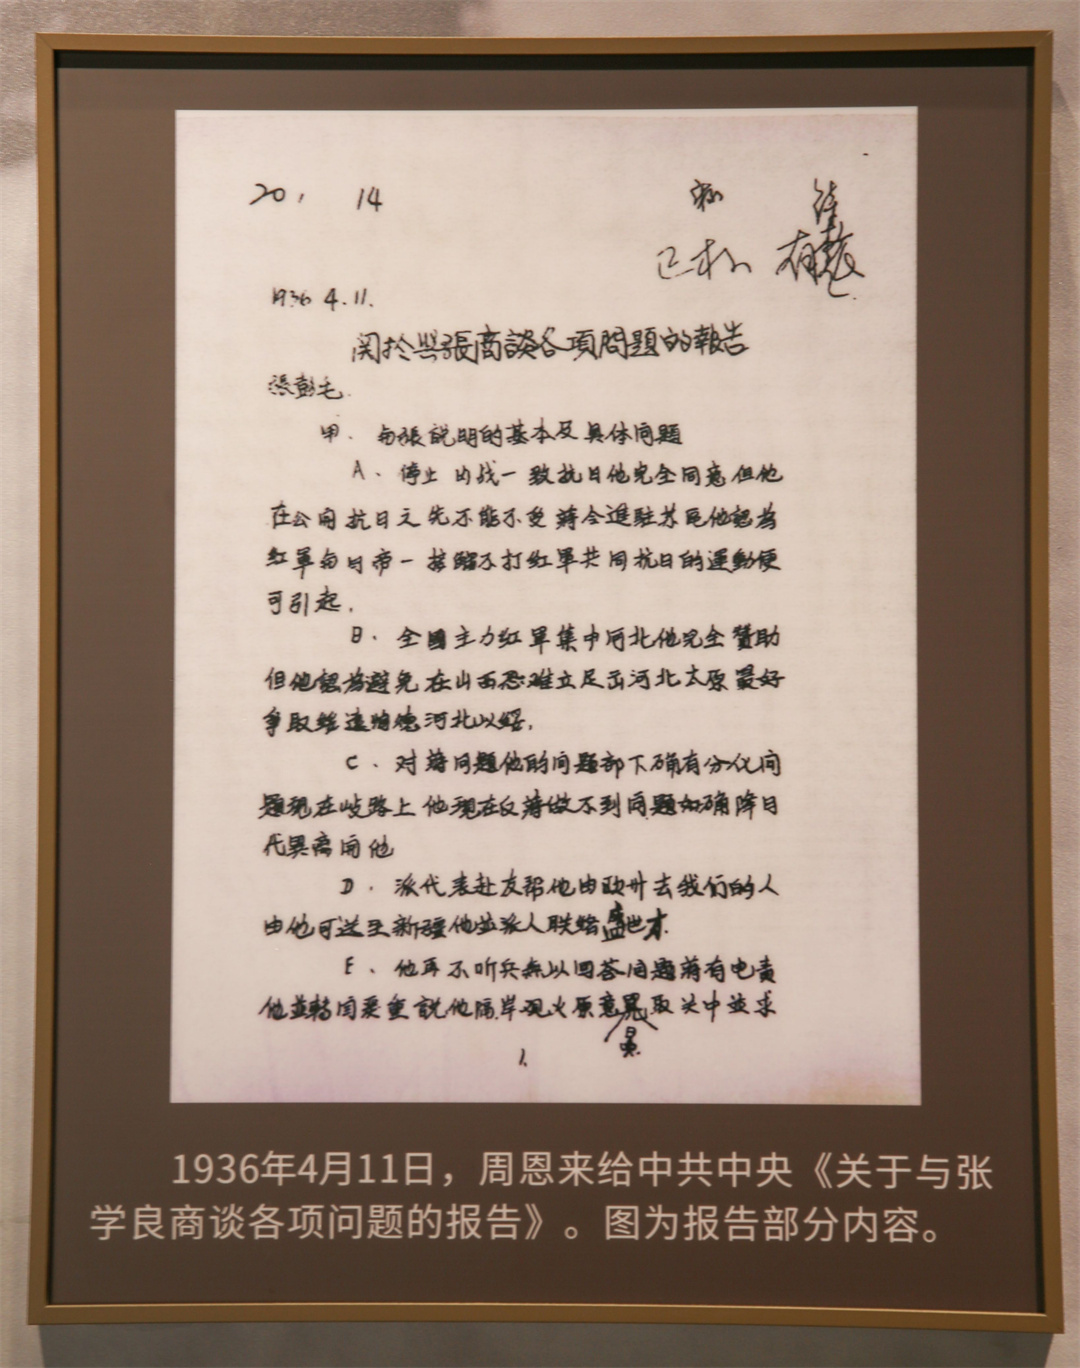 20, 14
1936 4.11.
関於與張商談各項問題的報告
張彭毛
甲. 与張説明的基本及具体问题
A、停止内战一致抗日他完全同意但他
在公开抗日之先不能不受蒋令進駐苏區他認為
红軍与日帝一接触不打红軍共同抗日的運動便
可引起.
B. 全國主力红軍集中河北他完全贊助
但他認為避免在山西恐难立足出河北太原最好
争取经 河北以绥.
C、对蒋问题他的问题部下确有分化问
题现在歧路上他现在反蒋做不到问题如确降日
代 離開他
D. 派代表赴友帮他由欧州去我们的人
由他可送至新疆他並派人联络盛世才
E、他再不听兵 以回答问题前有电责
他並轉 説他隔岸观火原意 取关中並求
1.
1936年4月11日，周恩来给中共中央《关于与张
学良商谈各项问题的报告》。图为报告部分内容。